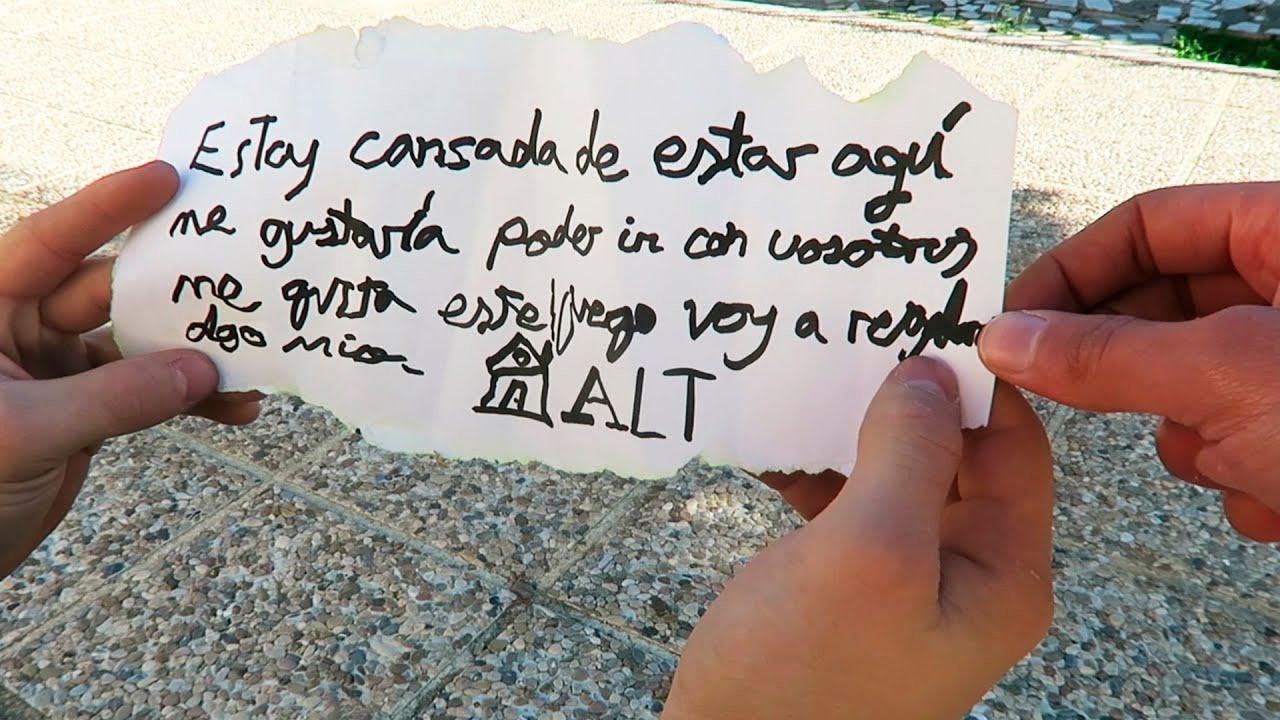 Estoy cansada de estar aquí
me gustaría poder ir con vosotros
me quita este juego voy a regalar
algo mio
ALT